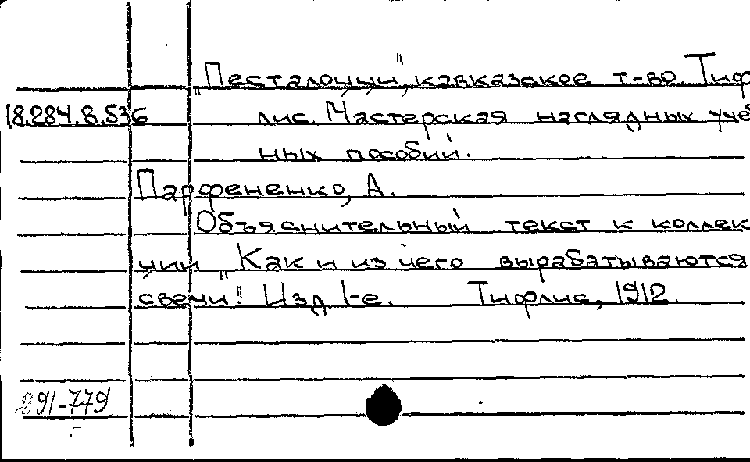 „Песталоции", кавказское т-во. Тиф
18.284.8.536 лис. Мастерская наглядных уче
ных пособий.
Парфененко, А.
Объяснительный текст к коллек
ции „Как и из чего вырабатываются
свечи". Изд. I-е. Тифлис, 1912.
891-779